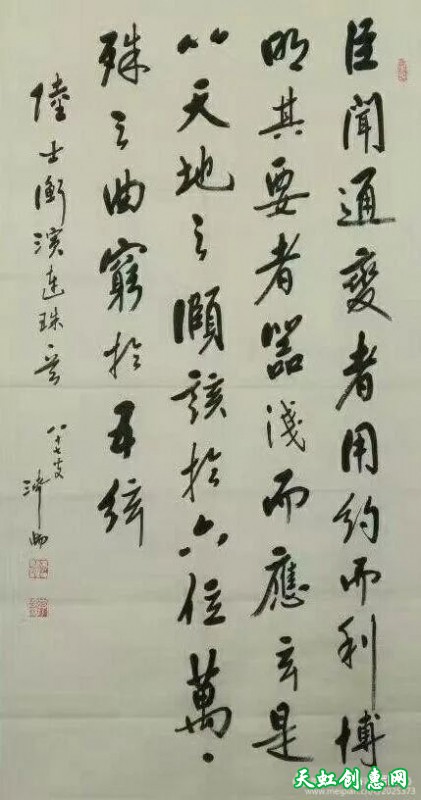 臣聞通變者用約而利博
明其要者器淺而應玄是
以天地之賾該於六位萬
殊之曲窮於五絃
陸士衡演連珠之一
八十七叟
天虹创惠网
www.meipian.cn/c/2025373